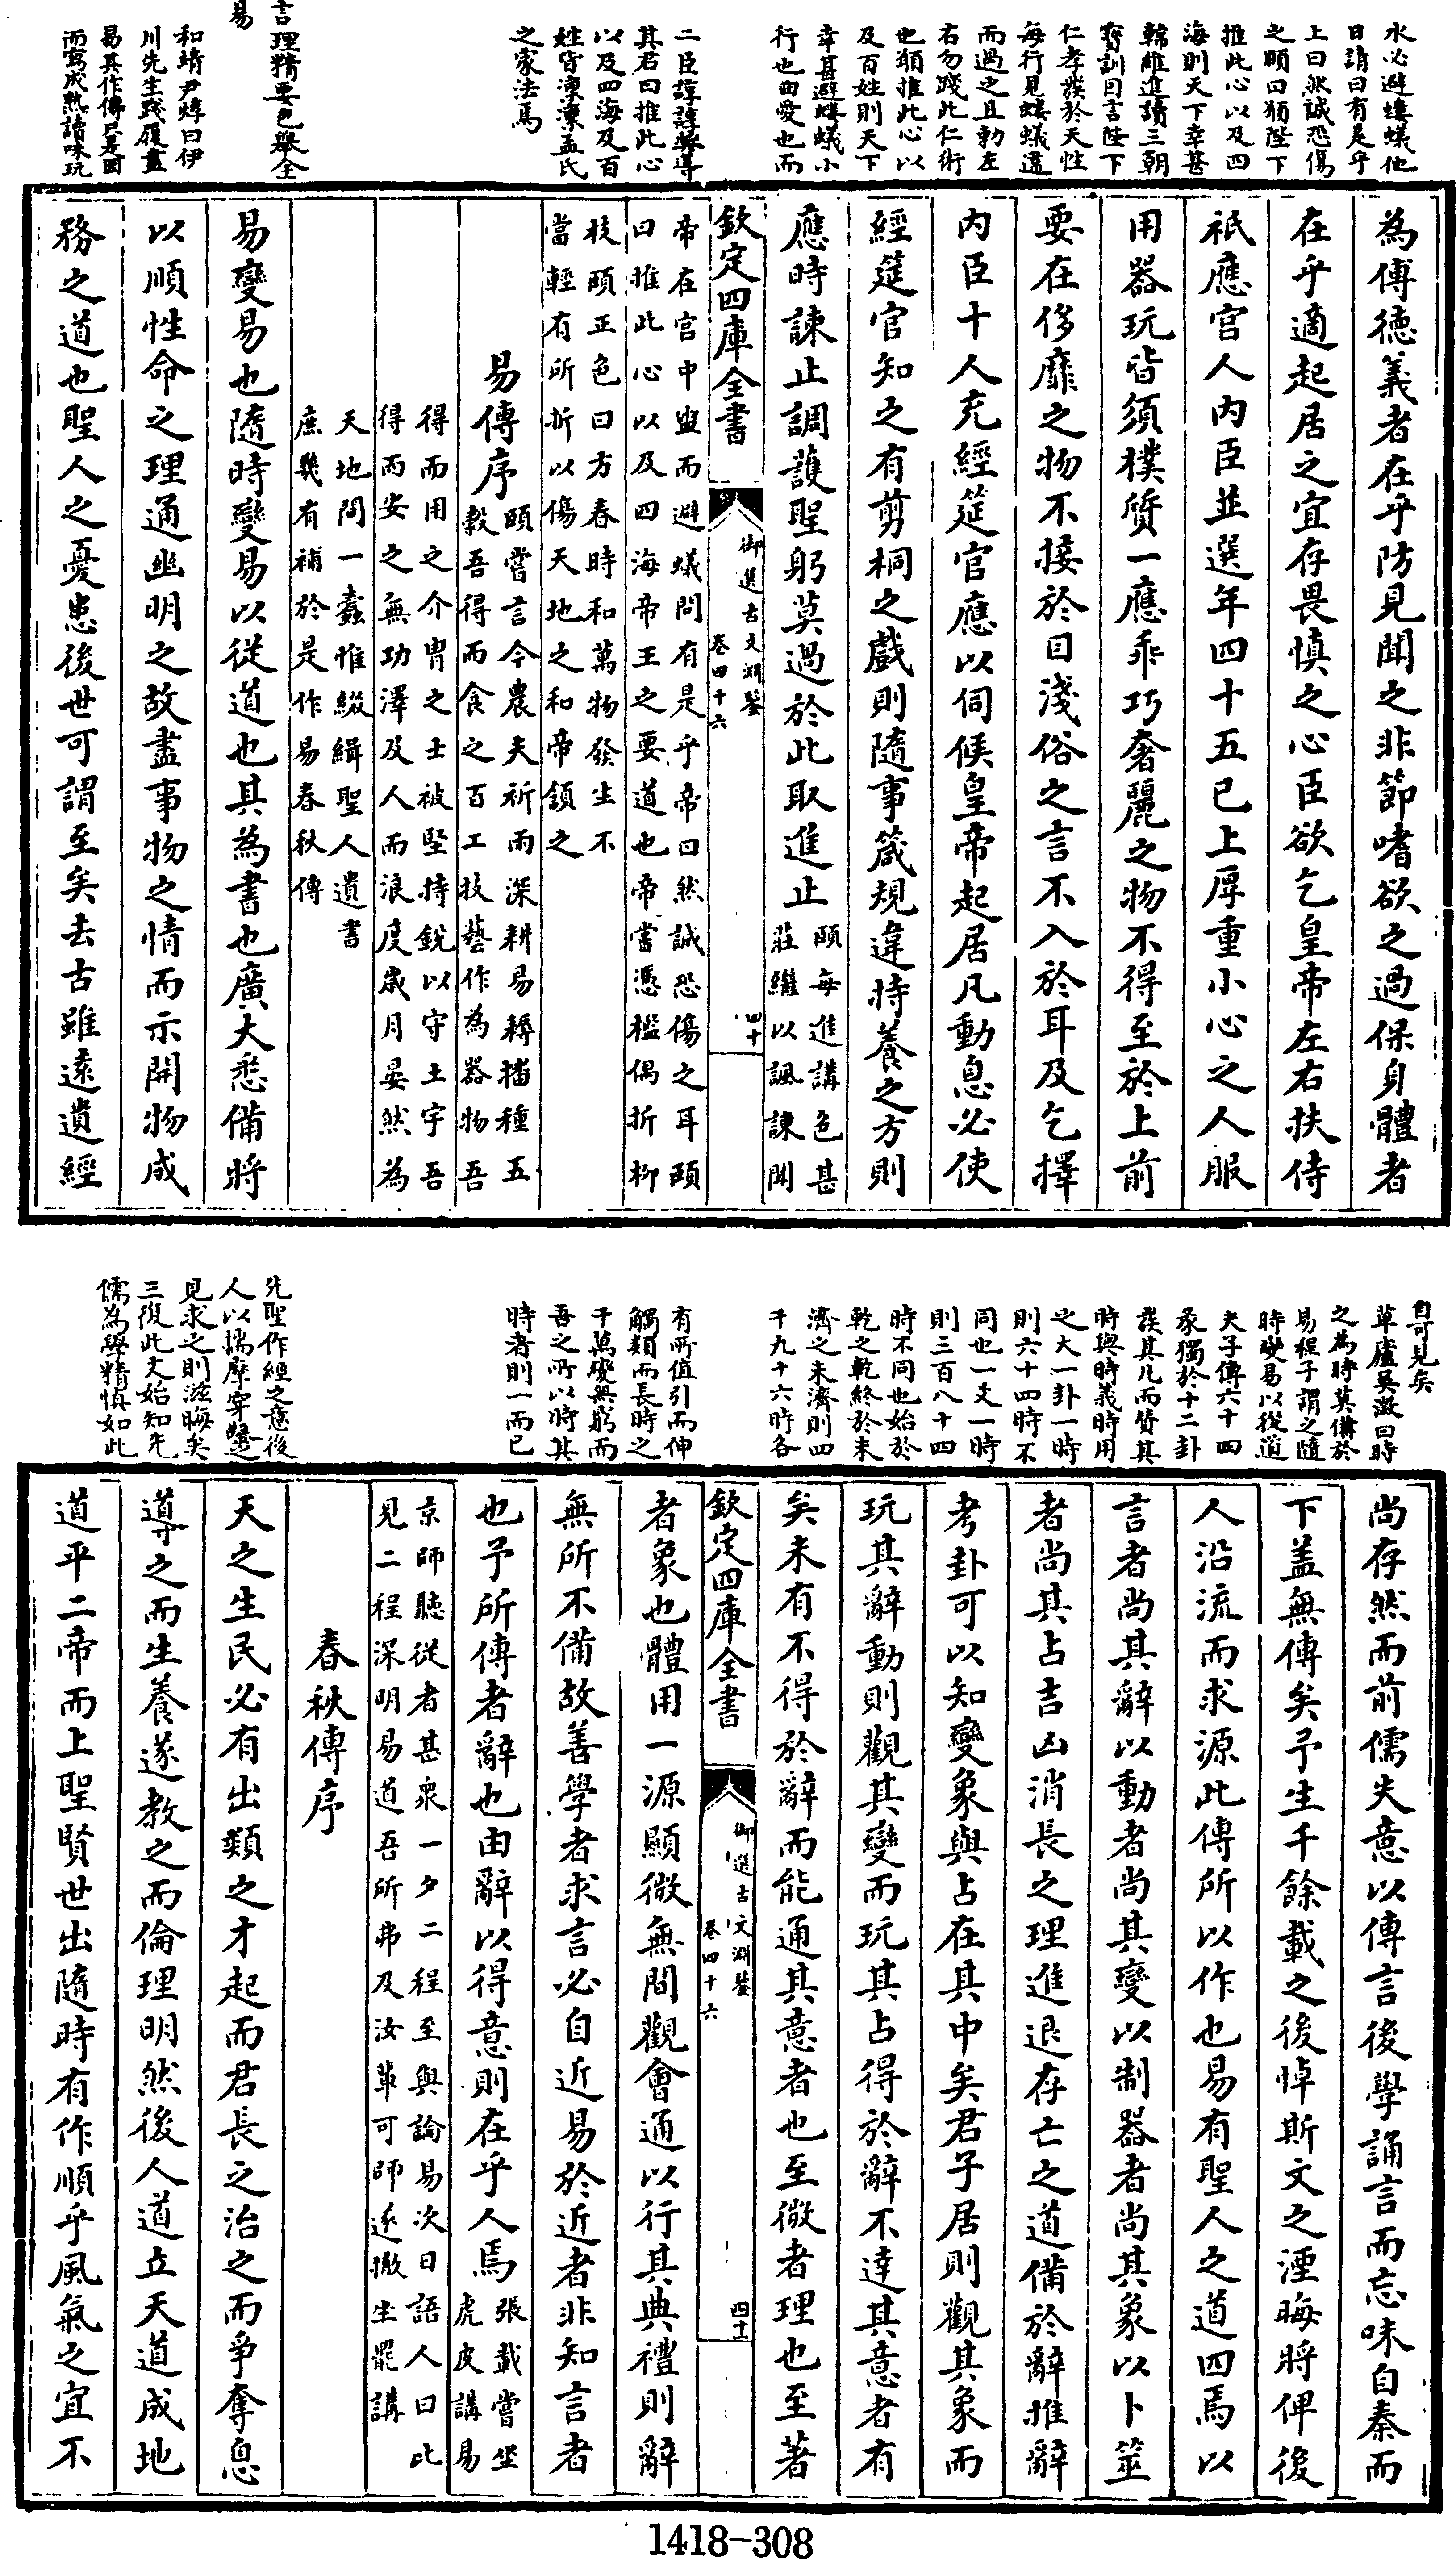 水必避螻蟻他
日請曰有是乎
上曰然誠恐傷
之頤曰願陛下
推此心以及四
海則天下幸甚
韓維進讀三朝
寶訓因言陛下
仁孝發於天性
每行見螻蟻違
而過之且勅左
右勿踐此仁術
也願推此心以
及百姓則天下
幸甚避螻蟻小
行也由愛也而
二臣諄諄導
其君曰推此心
以及四海及百
姓皆凜凜孟氏
之家法焉
言理精要包舉全
易
和靖尹焞曰伊
川先生踐履盡
易其作傳只是因
而寫成熟讀味玩
為傅德義者在乎防見聞之非節嗜欲之過保身體者
在乎適起居之宜存畏慎之心臣欲乞皇帝左右扶侍
祇應宫人内臣並選年四十五已上厚重小心之人服
用器玩皆須樸質一應乖巧奢麗之物不得至於上前
要在侈靡之物不接於目淺俗之言不入於耳及乞擇
内臣十人充經筵官應以伺候皇帝起居凡動息必使
經筵官知之有剪桐之戲則隨事箴規違持養之方則
應時諫止調護聖躬莫過於此取進止
頤每進講色甚
莊繼以諷諫聞
欽定四庫全書
御選古文淵鑒
卷四十六
四十
帝在宫中盥而避蟻問有是乎帝曰然誠恐傷之耳頤
曰推此心以及四海帝王之要道也帝嘗憑檻偶折柳
枝頤正色曰方春時和萬物發生不
當輕有所折以傷天地之和帝頷之
易傳序
頤嘗言今農夫祈雨深耕易耨播種五
穀吾得而食之百工技藝作為器物吾
得而用之介胄之士被堅持銳以守土宇吾
得而安之無功澤及人而浪度歲月晏然為
天地間一蠹惟綴緝聖人遺書
庶幾有補於是作易春秋傳
易變易也隨時變易以從道也其為書也廣大悉備將
以順性命之理通幽明之故盡事物之情而示開物成
務之道也聖人之憂患後世可謂至矣去古雖遠遺經
自可見矣
草廬吳澂曰時
之為時莫備於
易程子謂之隨
時變易以從道
夫子傳六十四
彖獨於十二卦
發其凡而贊其
時與時義時用
之大一卦一時
則六十四時不
同也一爻一時
則三百八十四
時不同也始於
乾之乾終於未
濟之未濟則四
千九十六時各
有所值引而伸
觸類而長時之
千萬變無窮而
吾之所以時其
時者則一而已
先聖作經之意後
人以揣摩穿鑿
見求之則滋晦矣
三復此文始知先
儒為學精慎如此
尚存然而前儒失意以傳言後學誦言而忘味自秦而
下盖無傳矣予生千餘載之後悼斯文之湮晦將俾後
人沿流而求源此傳所以作也易有聖人之道四焉以
言者尚其辭以動者尚其變以制器者尚其象以卜筮
者尚其占吉凶消長之理進退存亡之道備於辭推辭
考卦可以知變象與占在其中矣君子居則觀其象而
玩其辭動則觀其變而玩其占得於辭不達其意者有
矣未有不得於辭而能通其意者也至微者理也至著
欽定四庫全書
御選古文淵鑒
卷四十六
四十一
者象也體用一源顯微無間觀會通以行其典禮則辭
無所不備故善學者求言必自近易於近者非知言者
也予所傳者辭也由辭以得意則在乎人焉
張載嘗坐
虎皮講易
京師聽從者甚衆一夕二程至與論易次日語人曰此
見二程深明易道吾所弗及汝輩可師遂撤坐罷講
春秋傳序
天之生民必有出類之才起而君長之治之而爭奪息
導之而生養遂教之而倫理明然後人道立天道成地
道平二帝而上聖賢世出隨時有作順乎風氣之宜不
1418-308